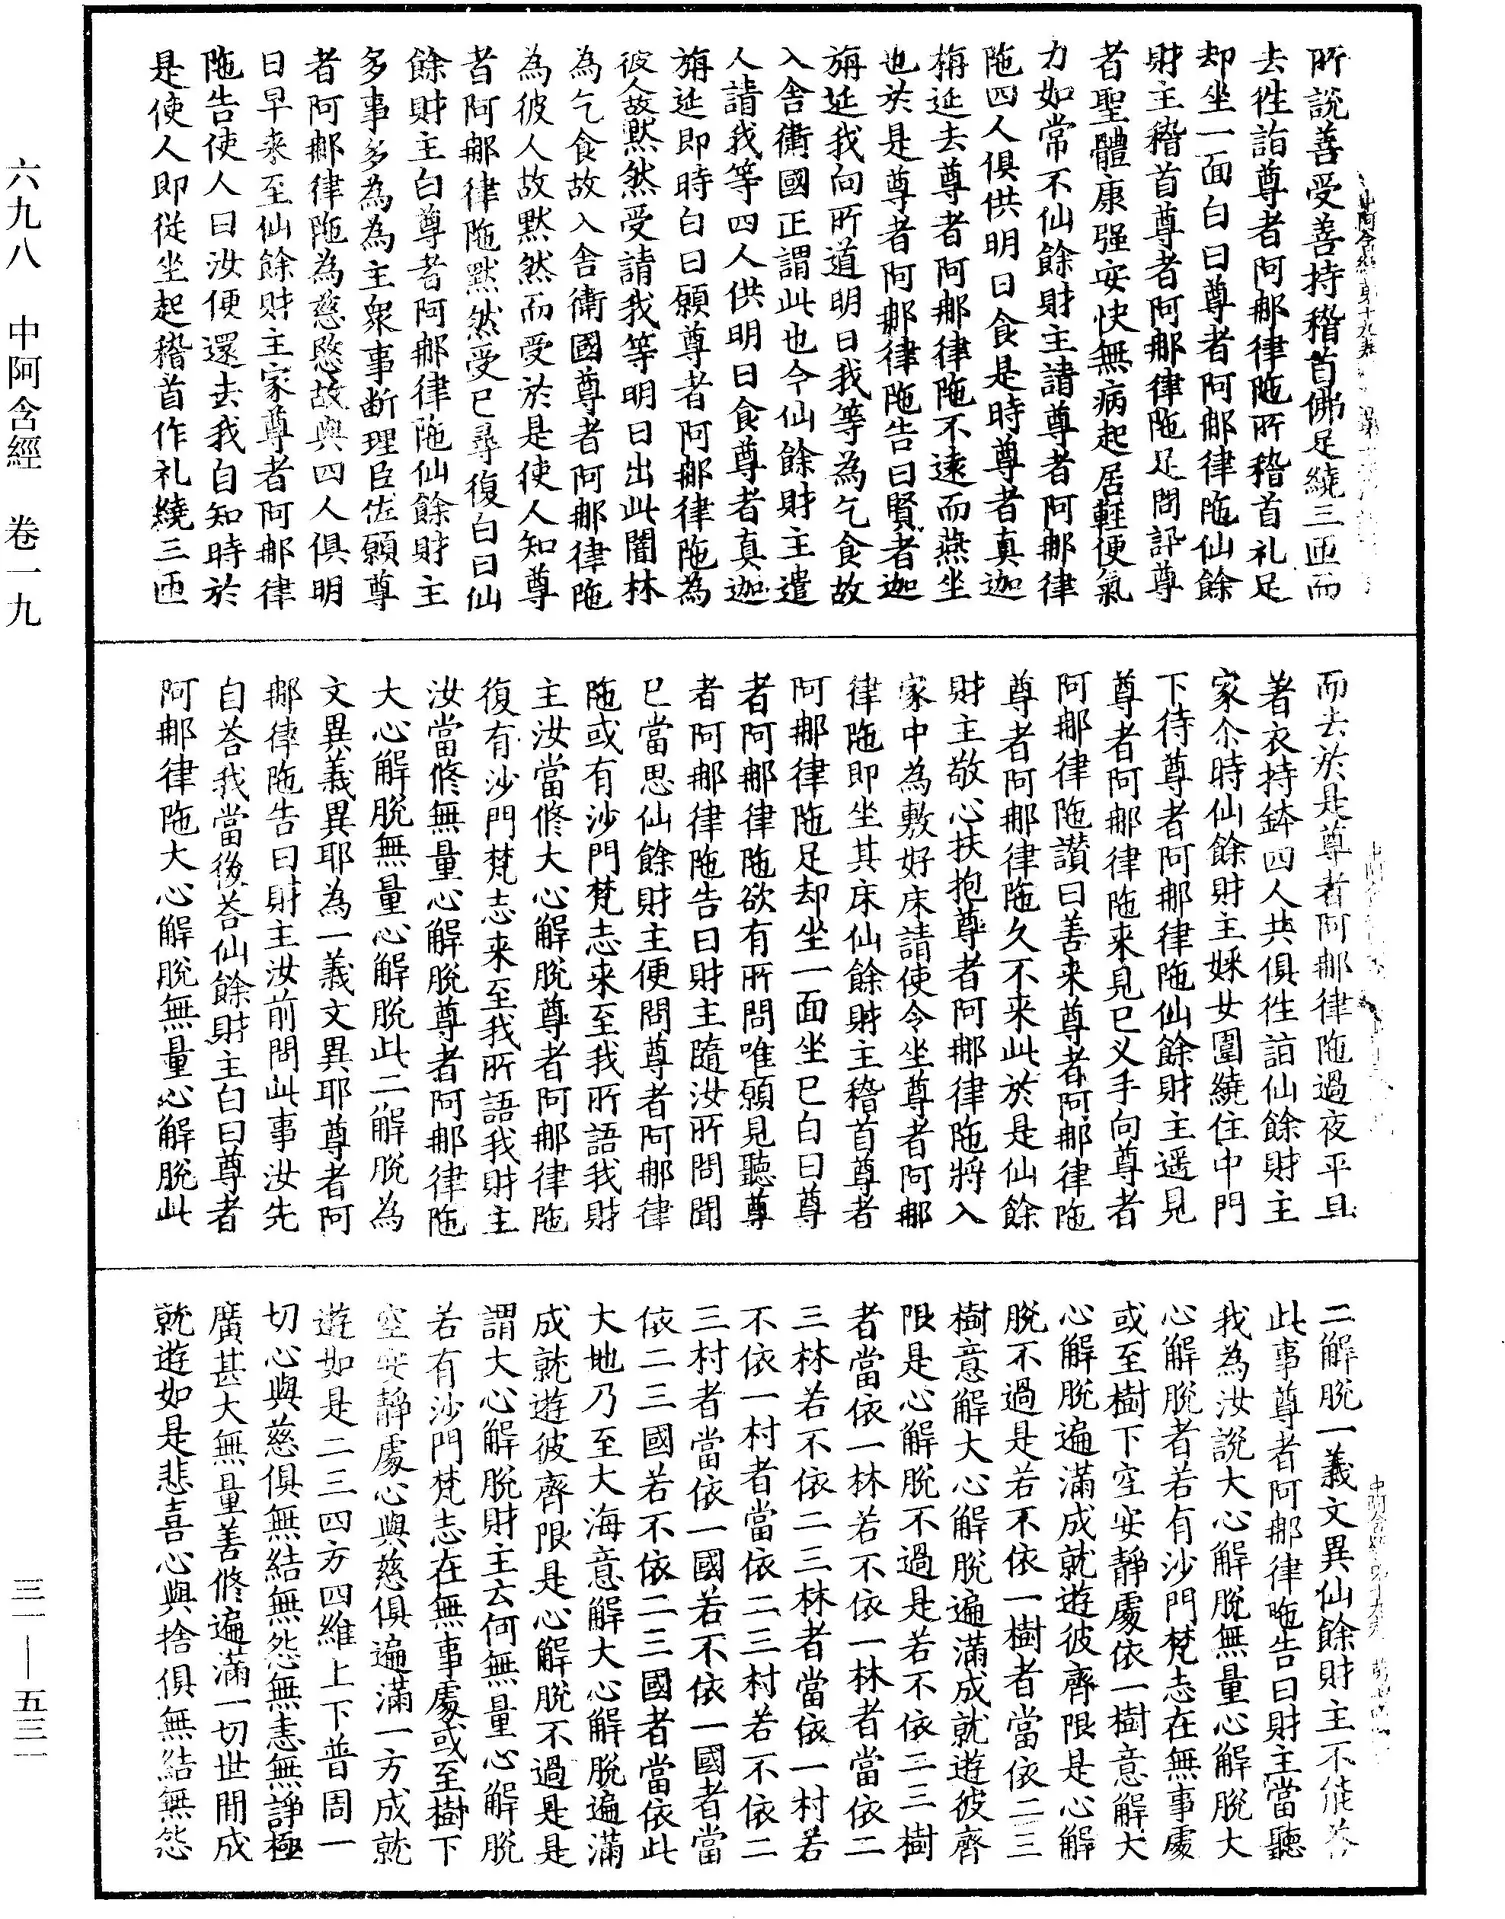 所說善受善持稽首佛足繞三匝而
去往詣尊者阿𨚗律陁所稽首礼足
却坐一面白曰尊者阿𨚗律陁仙餘
財主稽首尊者阿𨚗律陁足問訊尊
者聖體康强安快無病起居輕便氣
力如常不仙餘財主請尊者阿𨚗律
陁四人俱供明日食是時尊者真迦
旃延去尊者阿𨚗律陁不遠而燕坐
也於是尊者阿𨚗律陁告曰賢者迦
旃延我向所道明日我等為乞食故
入舍衛國正謂此也今仙餘財主遣
人請我等四人供明日食尊者真迦
旃延即時白曰願尊者阿𨚗律陁為
彼人故默然受請我等明日出此闇林
為乞食故入舍衛國尊者阿𨚗律陁
為彼人故默然而受於是使人知尊
者阿𨚗律陁默然受已尋復白曰仙
餘財主白尊者阿𨚗律陁仙餘財主
多事多為為主衆事断理臣佐願尊
者阿𨚗律陁為慈愍故與四人俱明
日早来至仙餘財主家尊者阿𨚗律
陁告使人曰汝便還去我自知時於
是使人即從坐起稽首作礼繞三匝
而去於是尊者阿𨚗律陁過夜平旦
著衣持鉢四人共俱往詣仙餘財主
家尒時仙餘財主婇女圍繞住中門
下待尊者阿𨚗律陁仙餘財主遥見
尊者阿𨚗律陁來見已叉手向尊者
阿𨚗律陁讚曰善来尊者阿𨚗律陁
尊者阿𨚗律陁久不来此於是仙餘
財主敬心扶抱尊者阿𨚗律陁將入
家中為敷好床請使令坐尊者阿𨚗
律陁即坐其床仙餘財主稽首尊者
阿𨚗律陁足却坐一面坐已白曰尊
者阿𨚗律陁欲有所問唯願見聽尊
者阿𨚗律陁告曰財主隨汝所問聞
已當思仙餘財主便問尊者阿𨚗律
陁或有沙門梵志来至我所語我財
主汝當修大心解脫尊者阿𨚗律陁
復有沙門梵志来至我所語我財主
汝當修無量心解脫尊者阿𨚗律陁
大心解脫無量心解脫此二解脫為
文異義異耶為一義文異耶尊者阿
𨚗律陁告曰財主汝前問此事汝先
自荅我當後荅仙餘財主白曰尊者
阿𨚗律陁大心解脫無量心解脫此
二解脫一義文異仙餘財主不能荅
此事尊者阿𨚗律陁告曰財主當聽
我為汝說大心解脫無量心解脫大
心解脫者若有沙門梵志在無事處
或至樹下空安靜處依一樹意解大
心解脫遍滿成就遊彼齊限是心解
脫不過是若不依一樹者當依二三
樹意解大心解脫遍滿成就遊彼齊
限是心解脫不過是若不依二三樹
者當依一林若不依一林者當依二
三林若不依二三林者當依一村若
不依一村者當依二三村若不依二
三村者當依一國若不依一國者當
依二三國若不依二三國者當依此
大地乃至大海意解大心解脫遍滿
成就遊彼齊限是心解脫不過是是
謂大心解脫財主云何無量心解脫
若有沙門梵志在無事處或至樹下
空安靜處心與慈俱遍滿一方成就
遊如是二三四方四維上下普周一
切心與慈俱無結無怨無恚無諍極
廣甚大無量善修遍滿一切世間成
就遊如是悲喜心與捨俱無結無怨
六九八 中阿含經 卷一九 三一—五三一